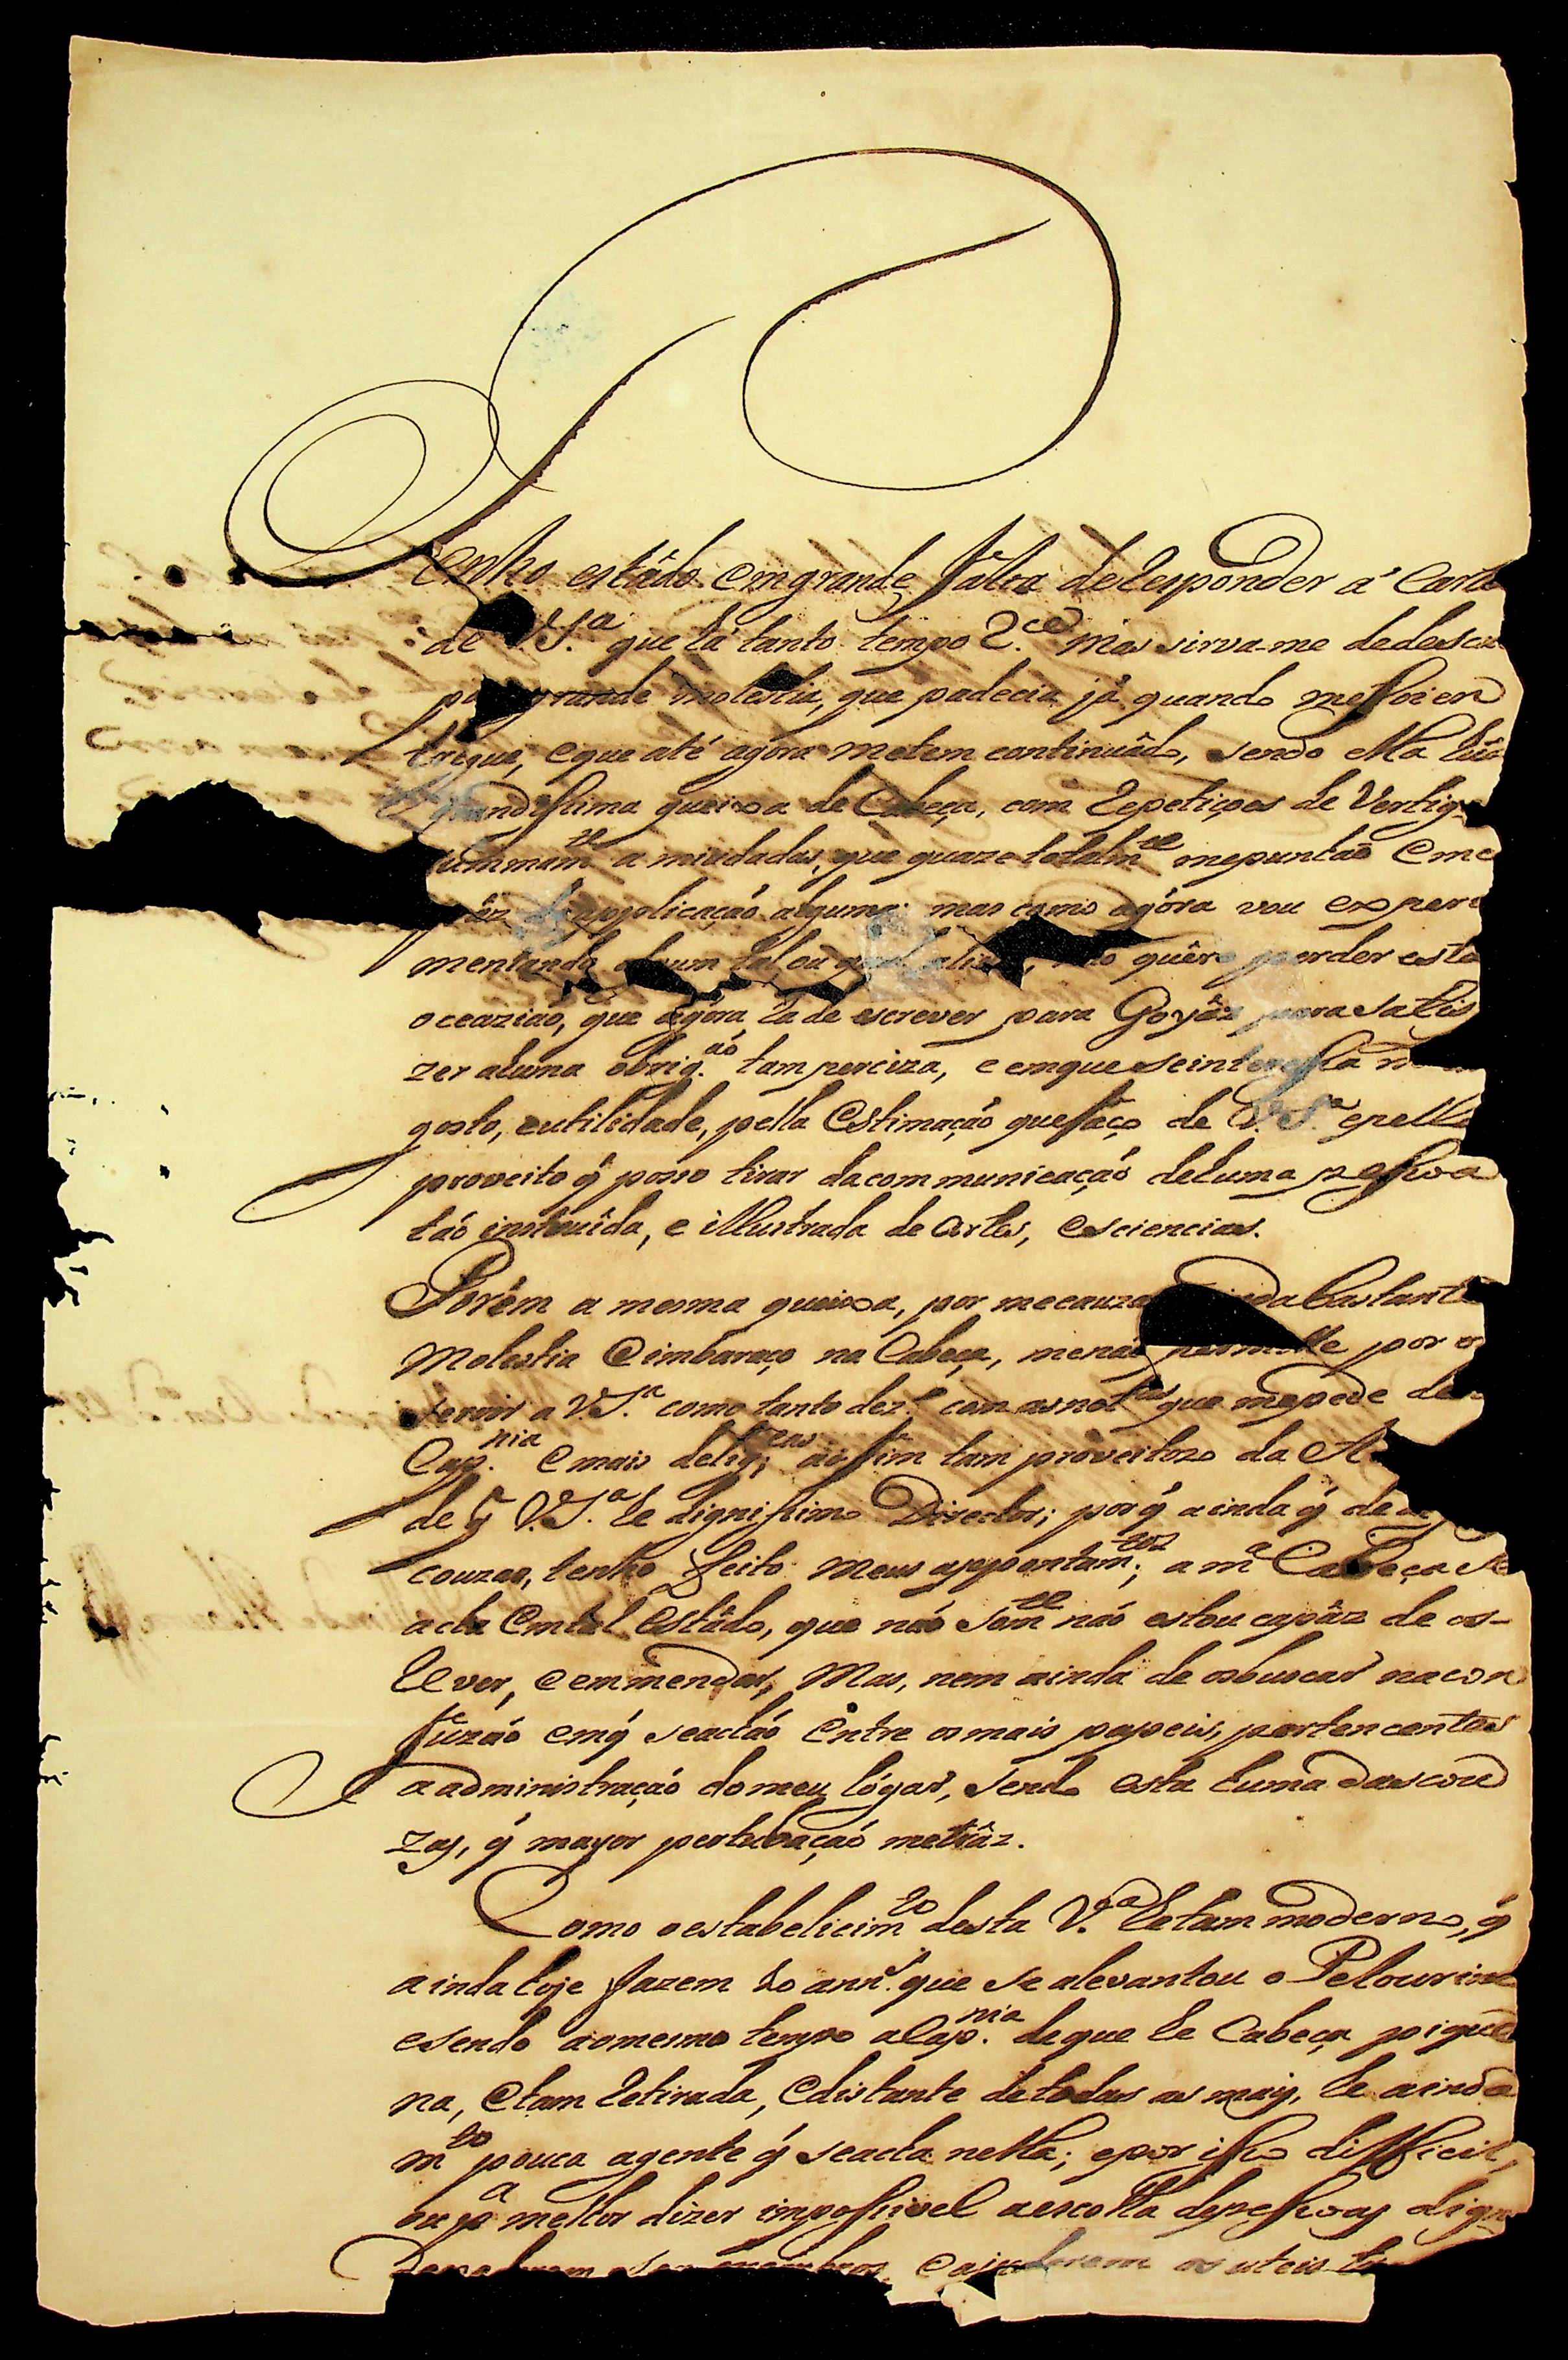 Tenho estádo em grande falta de responder á Carta
de V. S.ª que há tanto tempo R.ceo Mas sirva-me de desca
grande molestia, que padecia já quando me foi en
tregue, e que até agóra me tem continuádo, sendo ella húa
grandissima queixa de Cabeça, com repetiçoes de Vertig
summam.te a miudadas, que quaze totalm.te mepuntão e me
applicação alguma: mas como agóra vou experi
mentando algum tal ou qual alivio, não quéro perder esta
occazião, que agóra há de escrever para Goyáz para satis
zer a huma obrig.ão tam perciza, e em que se interessa
gosto, e utilidade, pella Estimação que faço de V. S.ª e pello
proveito q̃ posso tirar da communicação de huma pessoa
tão instruída, e illustrada de Artes, e sciencias.
Porém a mesma queixa, por me cauzar ainda bastante
Molestia e imbaraço na Cabeça, me não permitte por o
Servir a V. S.ª como tanto dez.º com as not.as que me pede de
Cap.nia e mais delig.cas ao fim tam proveitozo da A
de q̃ V. S.ª he dignissimo Director; por q̃ ainda q̃ de
couzas, tenho feito meus appontam.tos, a m.ª Cabeça se
acha em tal Estádo, que não som.te não estou capáz de os
rever, e emmendar, Mas, nem ainda de os buscar na con
fuzão em q̃ se achão Entre os mais papeis, pertencentes
a administração do meu lógar, sendo esta huma das cou
zas, q̃ mayor pertubação me tráz.
Como o establicim.to desta V.ª he tam moderno, q̃
ainda hoje fazem 20 ann.s que se alevantou o Pelourin
e sendo ao mesmo tempo a Cap.nia de que he Cabeça pique
na, e tam retirada, e distante de todas as mais, he ainda
m.to pouca a gente q̃ se acha nella; e por isso difficil,
ou p.ª melhor dizer impossivel a escolha de pessoas dign
e ajudarem os uteis